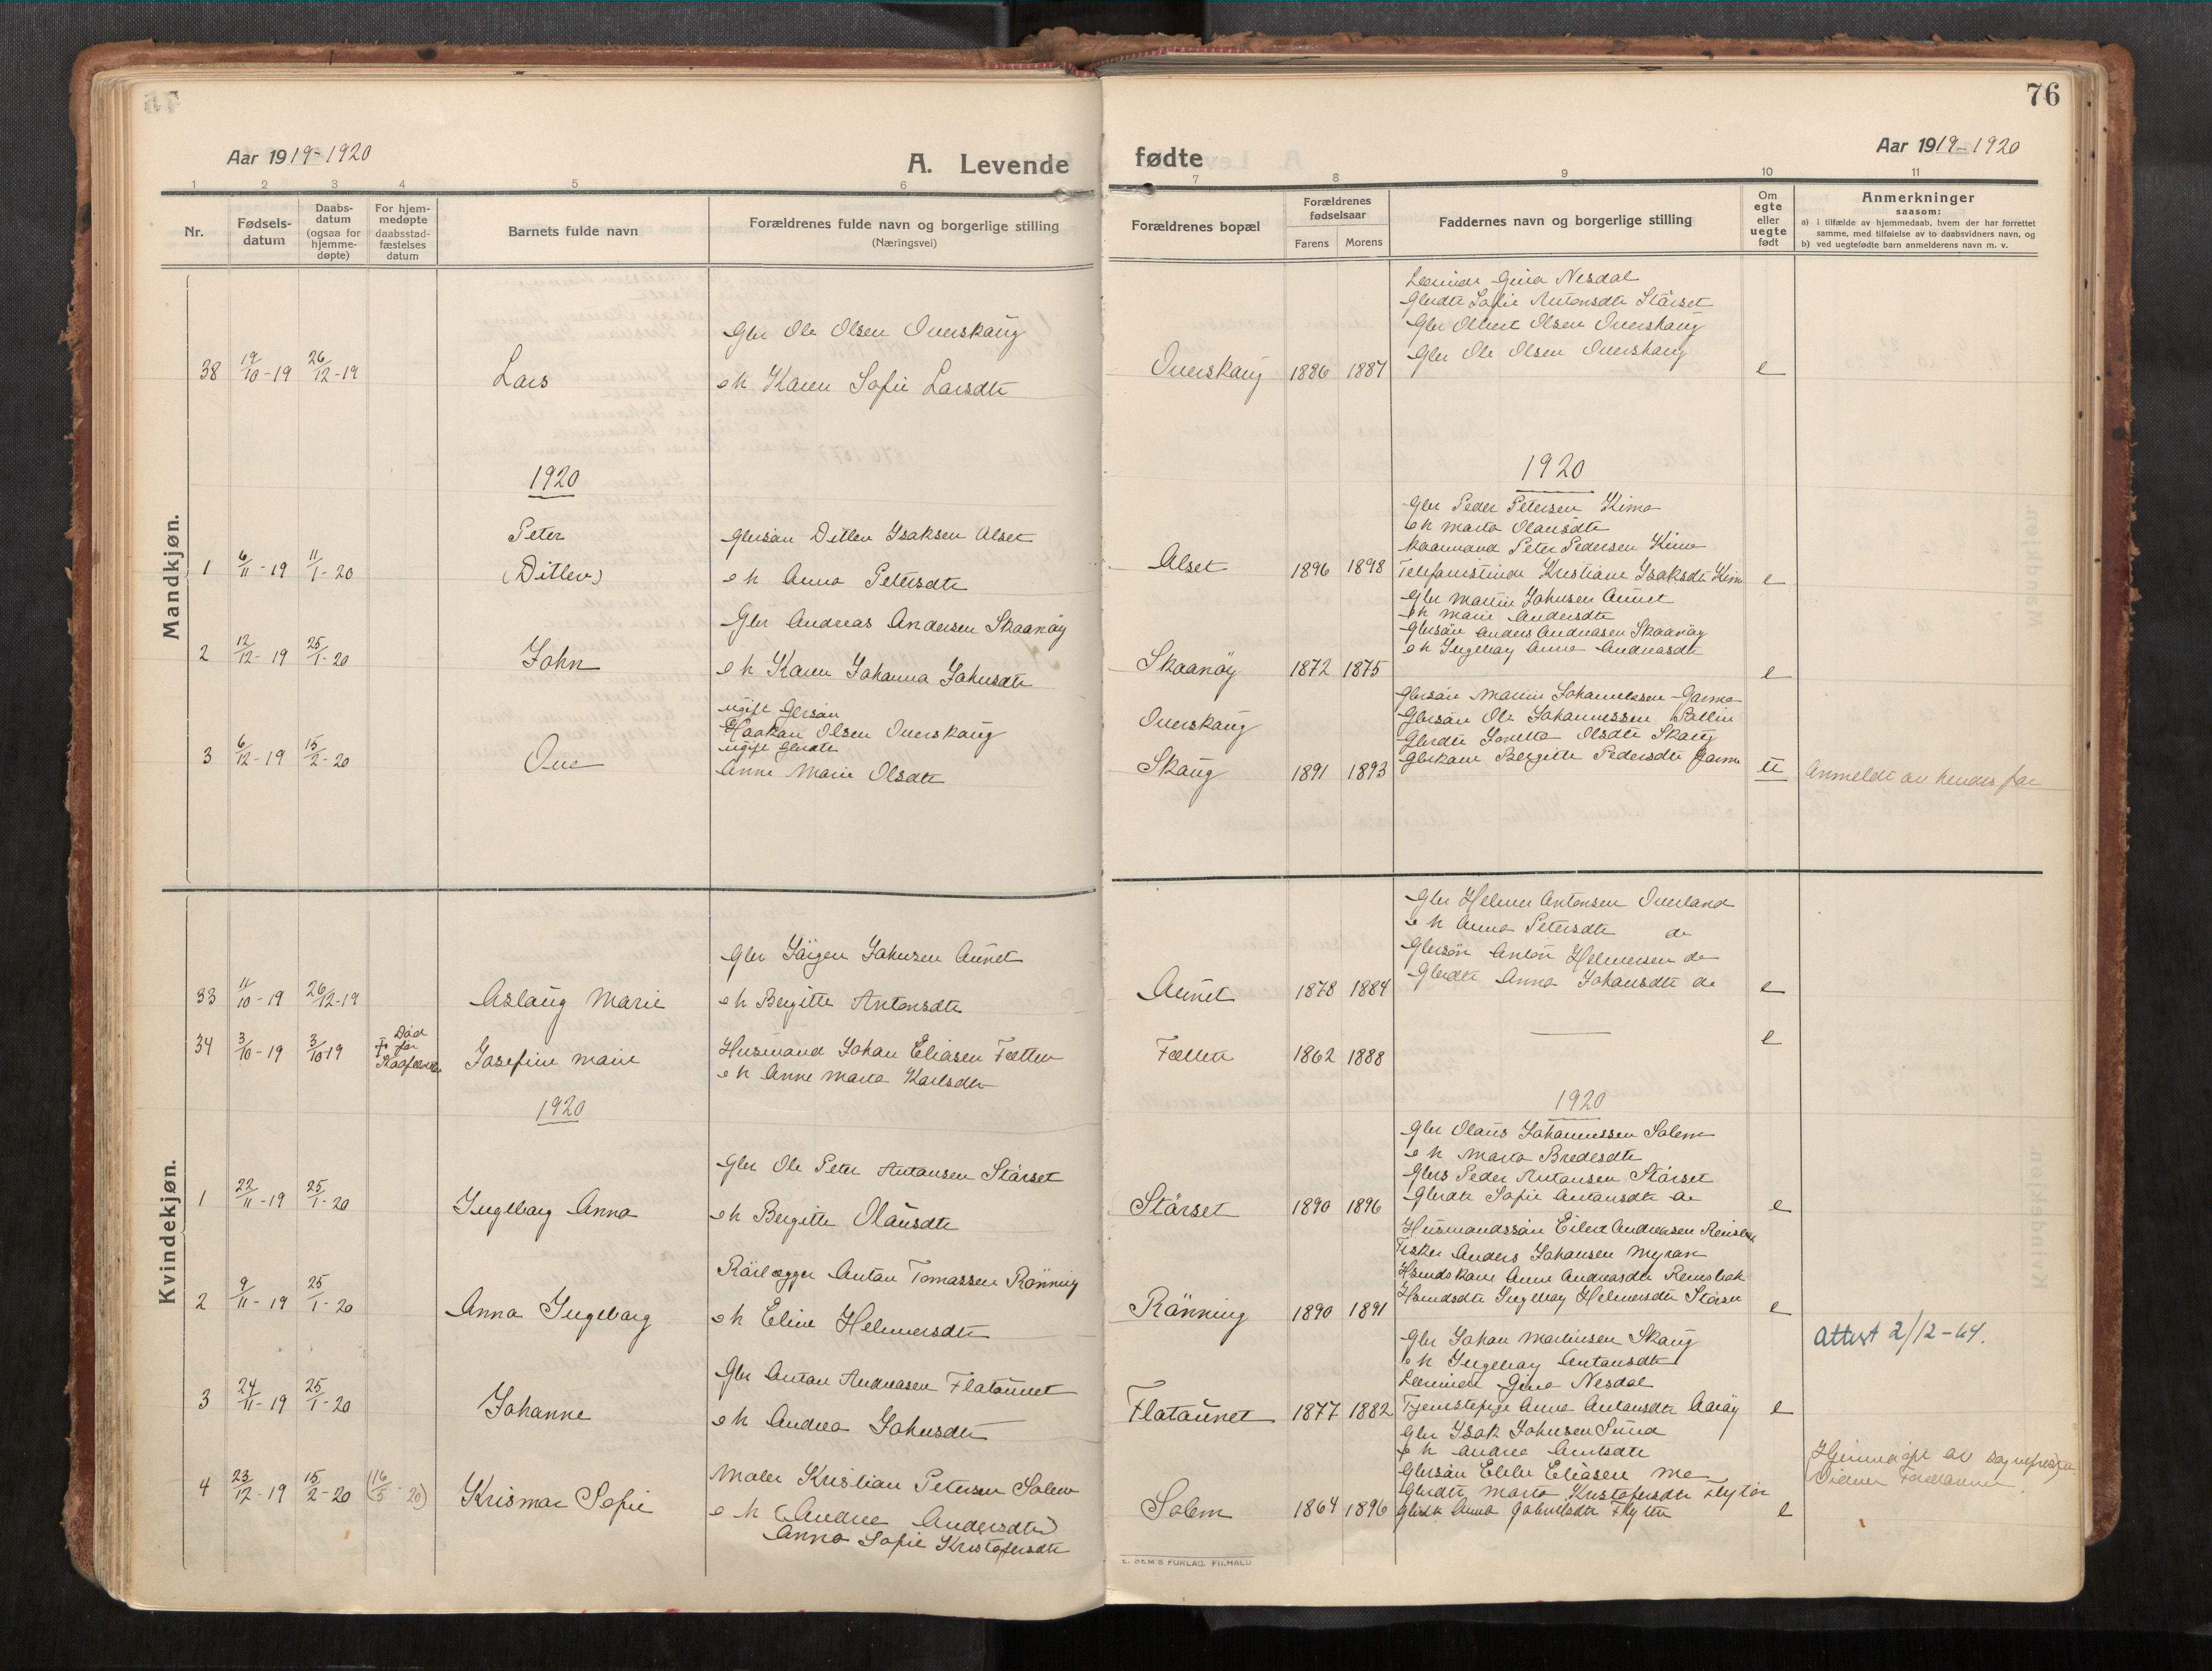 76
Aar 1919-1920
A. Levende fødte
Aar 1919-1920
1 2 3 4 5 6 7 8 9 10 11
Nr.
Fødsels-
datum
Daabs-
datum
(ogsaa for
hjemme-
døpte)
For hjem-
medøpte
daabsstad-
fæstelses
datum
Barnets fulde navn
Forældrenes fulde navn og borgerlige stilling
(Næringsvei)
Forældrenes bopæl
Forældrenes
fødselsaar
Farens
Morens
Faddernes navn og borgerlige stilling
Om
egte
eller
uegte
født
Anmerkninger
saasom:
a) i tilfælde av hjemmedaab, hvem der har forrettet
samme, med tilføielse av to daabsvidners navn, og
b) ved uegtefødte barn anmelderens navn m. v.
Mandkjøn.
38 19/10-19 26/12-19 Lars
Gbr Ole Olsen Overskaug
e h Karen Sofie Larsdtr
Overskaug 1886 1887
Lærinde Gina Nesdal
Gbrdtr Sofie Antonsdtr Størset
Gbr Olbert Olsen Overskaug
Gbr Ole Olsen Overskaug
e
1920
1920
1 6/11-19 11/1-20 Peter
(Ditlev)
Gbrsøn Ditlev Isaksen Alset
e h Anna Petersdtr
Alset 1896 1898
Gbr Peder Petersen Kimo
e h Marta Olausdtr
Kaarmand Peter Pedersen Kimo
Telefonistinde Kristiane Isaksdtr Kimo
e
2 12/12-19 25/1-20 John
Gbr Andreas Andersen Skaanøy
e h Karen Johanna Johnsdtr
Skaanøy 1872 1875
Gbr Martin Johnsen Aunet
e h Marie Andersdtr
Gbrsøn Anders Andreasen Skaanøy
e h Ingeborg Anna Andreasdtr
e
3 6/12-19 15/2-20 Ove
ugift Gbrsøn
Haakon Olsen Overskaug
ugift Gbrdtr
Anne Marie Olsdtr
Overskaug
Skaug 1891 1893
Gbrsøn Martin Johannessen Garmo
Gbrsøn Ole Johannessen
Gbrdtr Lovetta Olsdtr Skaug
Gbrkone Bergitte Pedersdtr Garmo
u
Anmeldt av hendes far
Kvindekjøn.
33 11/10-19 26/12-19 Aslaug Marie
Gbr Jørgen Johnsen Aunet
e h Bergitte Antonsdtr
Aunet 1878 1884
Gbr Helmer Antonsen Overland
e h Anna Petersdtr do
Gbrsøn Anton Helmersen do
Gbrdtr Anna Johansdtr do
e
34 3/10-19 3/10 19 Død
før
Josefine Marie
Husmand Johan Eliasen Fætten
e h Anne Marta Karlsdtr
Fætten 1862 1888
e
1920
1920
1 22/11-19 25/1-20 Ingeborg Anna
Gbr Ole Peter Antonsen Størset
e h Bergitte Olausdtr
Størset 1890 1896
Gbr Olaus Johannessen Solem
e h Marta Bredesdtr
Gbrs Peder Antonsen Størset
Gbrdtr Sofie Antonsdtr do
e
2 9/11-19 25/1-20 Anna Ingeborg
Rørlægger Anton Tomassen Rønning
e h Eline Helmersdtr
Rønning 1890 1891
Husmandssøn Eilert Andreasen Reinsbak
Fisker Anders Johansen Myran
Hsmdskone Anne Andreasdtr Reinsbak
Hsmdsdtr Ingeborg Helmersdtr Størset
e
Attest 2/12-64.
3 24/11-19 25/1-20 Johanne
Gbr Anton Andreasen Flataunet
e h Andrea Johnsdtr
Flataunet 1877 1882
Gbr Johan Martinsen Skaug
e h Ingeborg Antonsdtr
Lærinde Gina Nesdal
Tjenestepige Anna Antonsdtr Aarøy
e
4 23/12-19 15/2-20 (16/5 20) Krismar Sofie
Maler Kristian Petersen Solem
e h (Andrea Andersdtr)
Anna Sofie Kristofersdtr
Solem 1864 1896
Gbr Isak Johnsen Sund
e h Andrea Arntsdtr
Gbrsøn Eliasen Mo
Gbrdtr Marta Kristofersdtr
Gbrdtr Anna Flytør
e
Hjemmedøpt av sognepresten
E. SEM'S FORLAG, FR.HALD